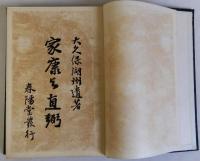 大久保湖州遺著
家康と直弼
春陽堂發行